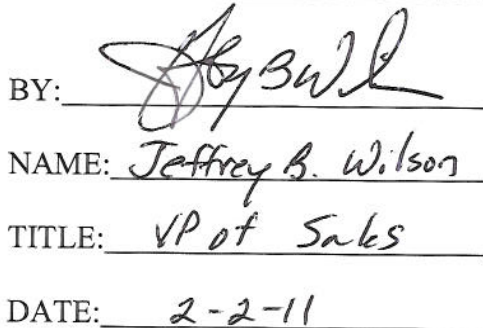 BY:
NAME: Jeffrey B. Wilson
TITLE: VP of Sales
DATE: 2-2-11